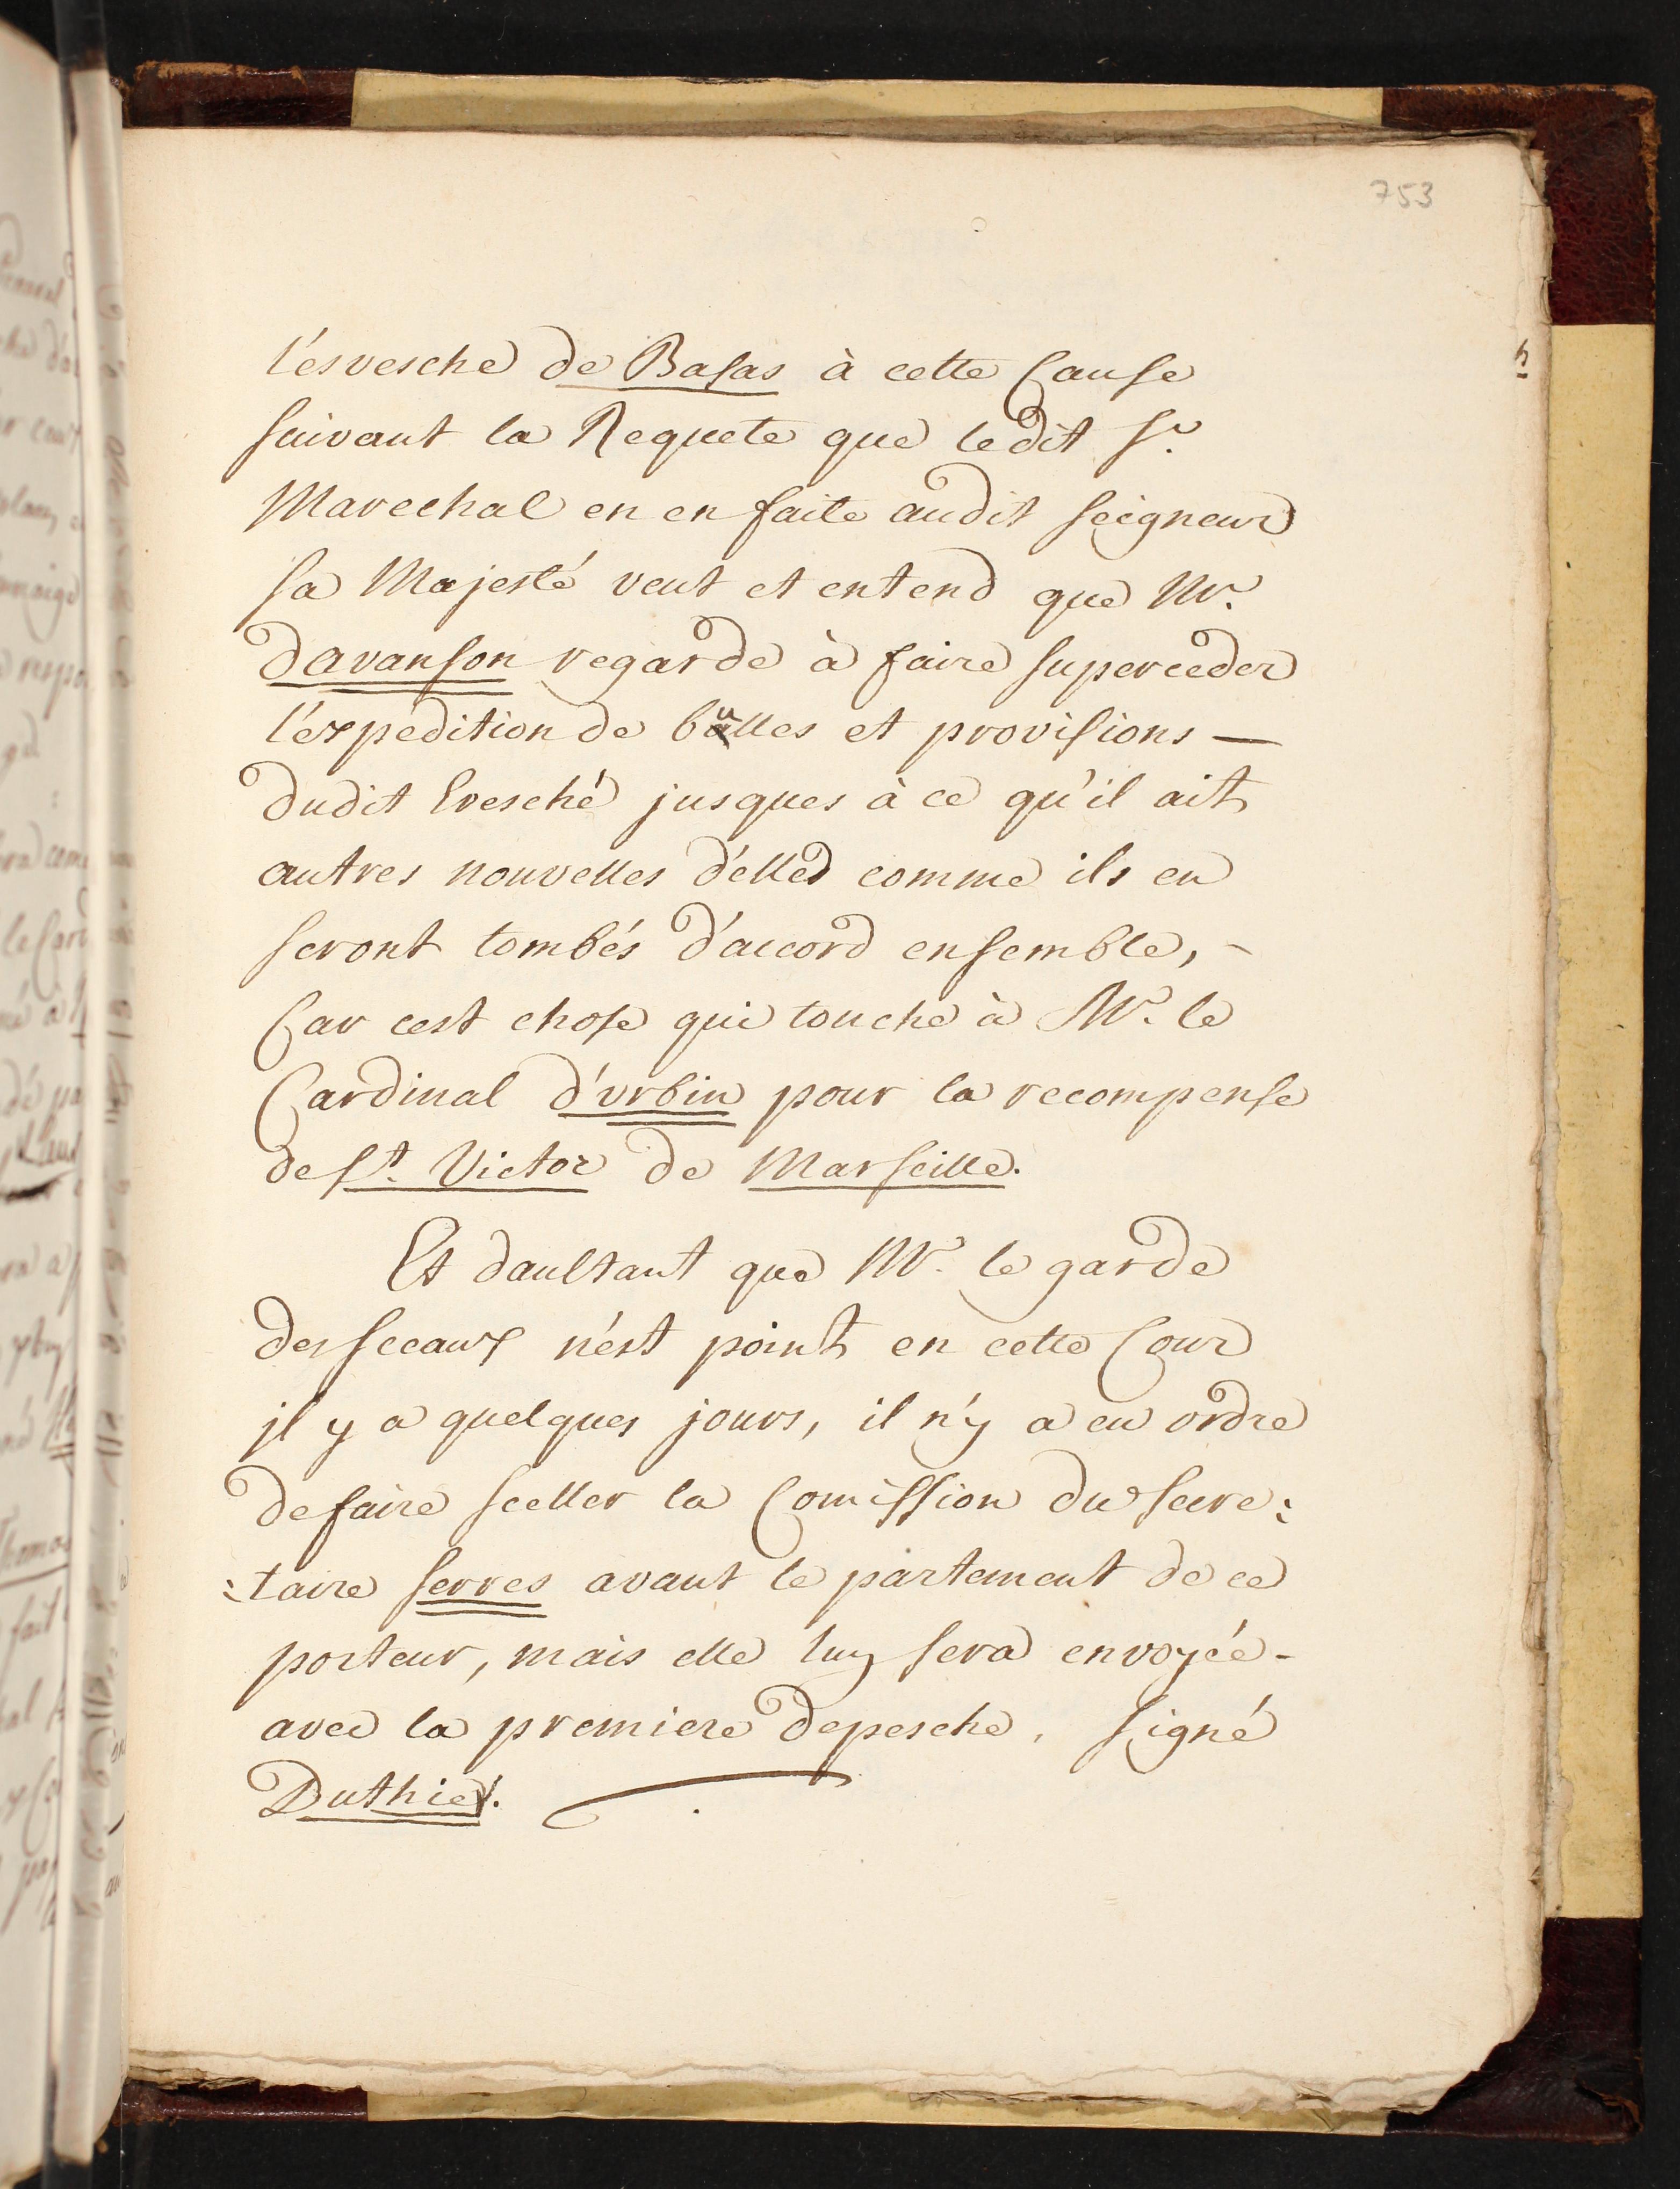 753
l'ésvesche de Basas à cette Cause
suivant la Requete que ledit Sr.
Marechal en en faite audit seigneur
sa Majesté veut et entend que Mr.
davanson regarde à faire superceder
l'expedition de bulles et provisions —
dudit Evesché jusques à ce qu'il ait
autres nouvelles d'elles comme ils en
seront tombés d'accord ensemble, -
Car cest chose qui touche à Mr. le
Cardinal d'urbin pour la recompense
de St. Victor de Marseille.
Et daultant que Mr. le garde
des sceaux n'ést point en cette Cour
il y a quelques jours, il n'y a eu ordre
de faire sceller la Comission du secre:
:taire serres avant le partement de ce
porteur, mais elle luy sera envoyée -
avec la premiere depesche. signé
Duthier.